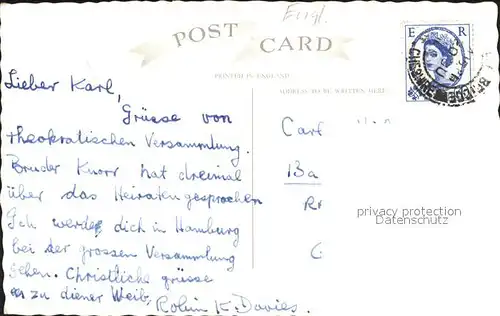 Engl.
POST CARD
PRINTED IN ENGLAND
ADDRESS TO BE WRITTEN HERE
E R
CHESHIRE
Lieber Karl,
Grüsse von
theokratischen Versammlung.
Bruder Knorr hat dreimal
über das Heiraten gesprochen
Ich werde dich in Hamburg
bei der grossen Versammlung
sehen. Christliche grüsse
zu diener Weib,
Robin K. Davies.
Carl
Ba
privacy protection
Datenschutz